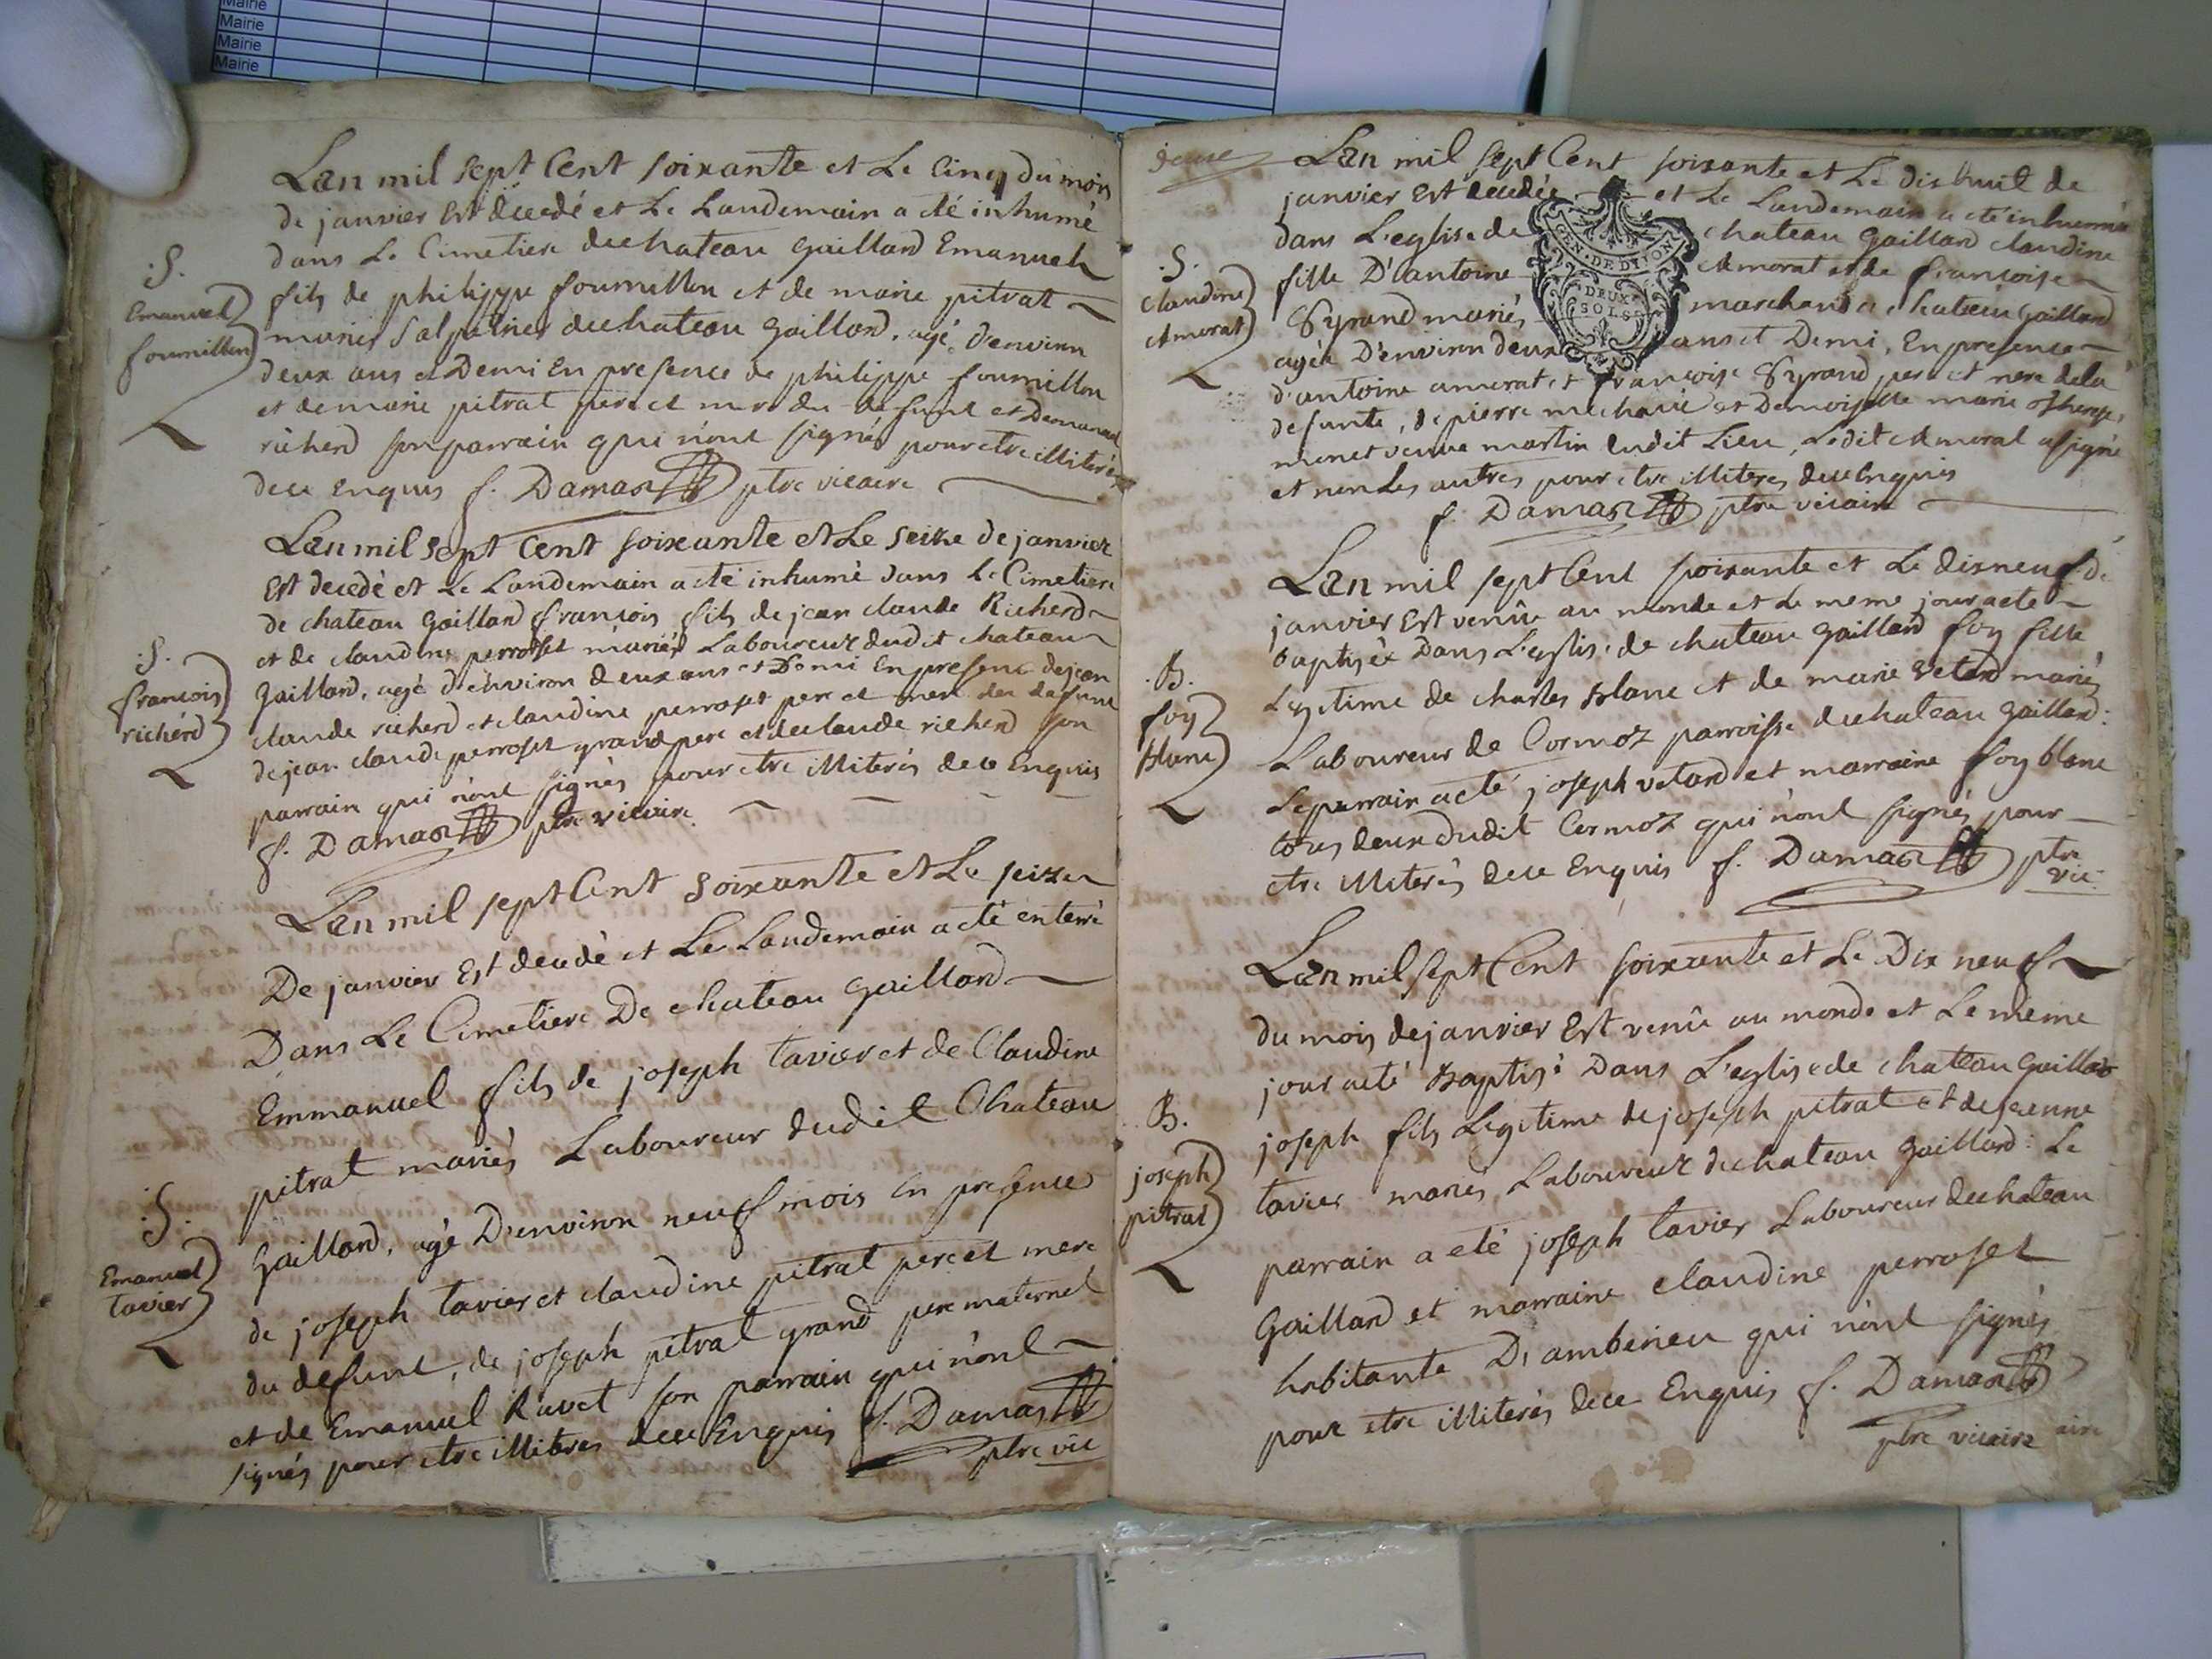 Mairie
Mairie
Mairie
Mairie
Lan mil sept Cent soixante et Le Cinq du mois
de janvier Est decedé et Le Landemain a eté inhumé
dans Le Cimetiere de chateau Gaillard Emanuel
fils de philippe fournillon et de marie pitrat
mariés salpétrier de chateau Gaillard, agé d'environ
deux ans et Demi En presence de philippe fournillon
et de marie pitrat pere et mere du defunt et Demanuel
richerd son parrain qui n'ont signés pour etre illiterés
de ce Enquis f. Damas ptre vicaire
.S.
Emanuel
fournillon
Lan mil sept Cent soixante et Le seize de janvier
Est decedé et Le Landemain a eté inhumé dans Le Cimetiere
de chateau Gaillard francois fils de jean claude Richerd
et de claudine perroset mariés Laboureur dudit chateau
Gaillard, agé d'environ deux ans et Demi En presence de jean
claude richerd et claudine perroset pere et mere du defunt
de jean claude perroset grand pere et de claude richerd son
parrain qui n'ont signés pour etre illiterés de ce Enquis
f. Damas ptre vicaire
.S.
francois
richerd
Lan mil sept Cent soixante et Le seize
De janvier Est decedé et Le Landemain a eté enterré
Dans Le Cimetiere De chateau Gaillard
Emmanuel fils de joseph tavier et de Claudine
pitrat mariés Laboureur dudit Chateau
Gaillard, agé D'environ neuf mois En presence
de joseph tavier et claudine pitrat pere et mere
du defunt, de joseph pitrat grand pere maternel
et de Emanuel Ravet son parrain qui n'ont
signés pour etre illiteres de ce Enquis f. Damas
ptre vic
.S.
Emanuel
tavier
deuxe
Lan mil sept Cent soixante et Le dixhuit de
janvier Est decedée et Le Landemain a eté inhumée
dans L'eglise de chateau Gaillard claudine
fille D'antoine Amorat et de francoise
Gyrand mariés marchand a chateau Gaillard
agée D'environ deux ans et Demi, En presence
d'antoine amorat et francoise Gyrand pere et mere de la
defunte, de pierre michaud et Demoiselle marie therese
monet veuve martin dudit Lieu, Ledit Amorat a signé
et non Les autres pour etre illiteres de ce Enquis
f. Damas ptre vicaire
GEN. DE DIJON
DEUX
SOLS
.S.
claudine
Amorat
Lan mil sept Cent soixante et Le dixneuf de
janvier Est venüe au monde et Le meme jour a eté
baptisée Dans L'eglise de chateau Gaillard foy fille
Legitime de charles blanc et de marie vetard mariés
Laboureur de Cormoz parroisse de chateau Gaillard:
Le parrain a eté joseph vetard et marraine foy blanc
tous deux dudit Cormoz qui n'ont signés pour
etre illiterés de ce Enquis f. Damas ptre
vic
.B.
foy
blanc
Lan mil sept Cent soixante et Le Dix neuf
du mois de janvier Est venû au monde et Le même
jour a eté Baptisé Dans L'eglise de chateau Gaillard
joseph fils Legitime de joseph pitrat et de jeanne
tavier mariés Laboureur de chateau Gaillard: Le
parrain a eté joseph tavier Laboureur de chateau
Gaillard et marraine claudine perroset
habitante D'ambérieu qui n'ont signés
pour etre illiterés de ce Enquis f. Damas
ptre vicaire
B.
joseph
pitrat